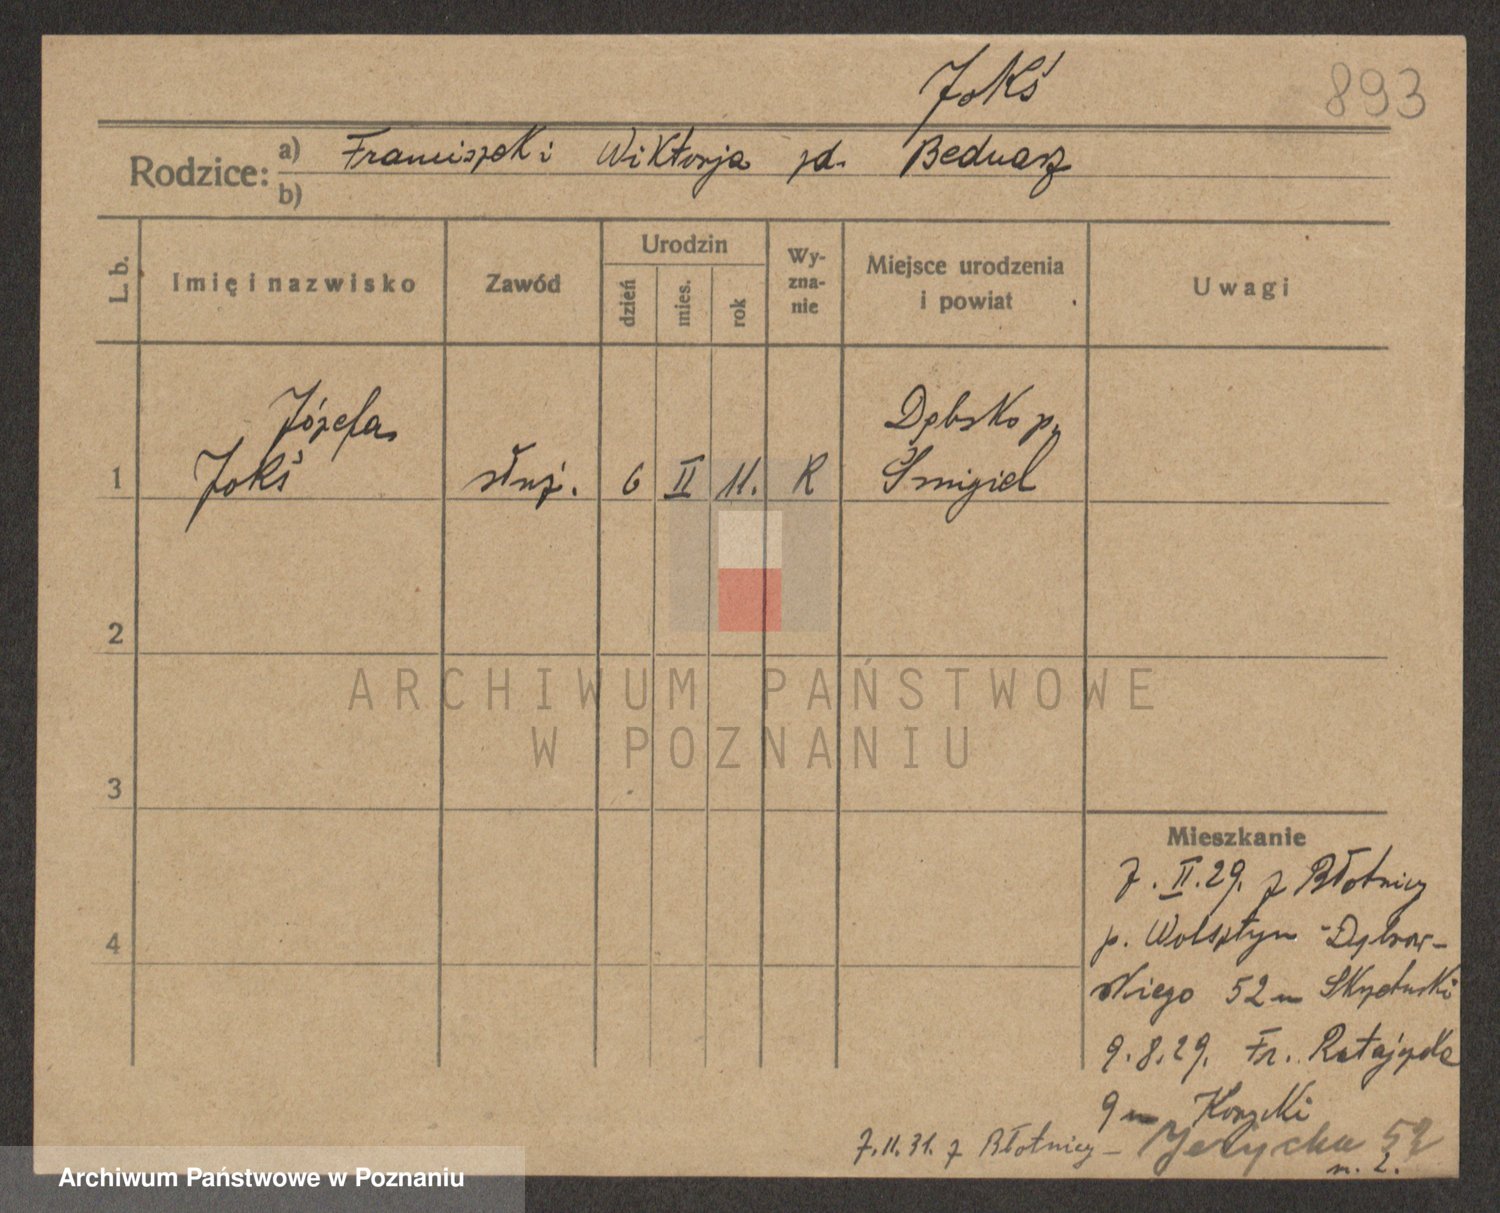 Jokś
893
Rodzice: a) Franciszek i Wiktorja zd. Bednarz
b)
L. b. Imię i nazwisko Zawód Urodzin dzień mies. rok Wy-zna-nie Miejsce urodzenia i powiat Uwagi
Józefa
Jokś
1 służ. 6 II 11. R Dębsko p.
Śmigiel
2
ARCHIWUM PAŃSTWOWE
W POZNANIU
3
4
Mieszkanie
7. II. 29. z Błotnicy
p. Wolsztyn - Dąbrow-
skiego 52 m
9. 8. 29. Fr. Ratajczaka
9 m
7. 11. 31. z Błotnicy - Jeżycka 52
m. 2.
Archiwum Państwowe w Poznaniu